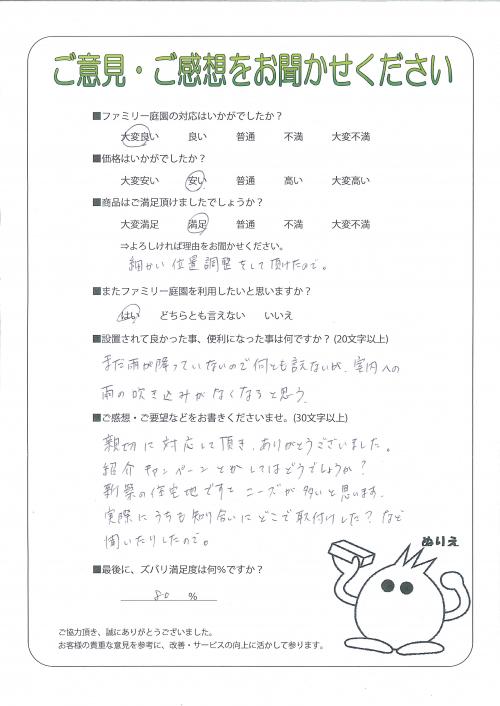 ご意見・ご感想をお聞かせください
■ファミリー庭園の対応はいかがでしたか？
大変良い　良い　普通　不満　大変不満
■価格はいかがでしたか？
大変安い　安い　普通　高い　大変高い
■商品はご満足頂けましたでしょうか？
大変満足　満足　普通　不満　大変不満
⇒よろしければ理由をお聞かせください。
細かい位置調整をして頂けたので。
■またファミリー庭園を利用したいと思いますか？
はい　どちらとも言えない　いいえ
■設置されて良かった事、便利になった事は何ですか？(20文字以上)
まだ雨が降っていないので何とも言えないが、室内への
雨の吹き込みがなくなると思う。
■ご感想・ご要望などをお書きくださいませ。(30文字以上)
親切に対応して頂き、ありがとうございました。
紹介キャンペーンとかしてはどうでしょうか？
新築の住宅地ですと ニーズが多いと思います。
実際にうちも知り合いにどこで取付けした？など
聞いたりしたので。
ぬりえ
■最後に、ズバリ満足度は何％ですか？
80 %
ご協力頂き、誠にありがとうございました。
お客様の貴重な意見を参考に、改善・サービスの向上に活かして参ります。